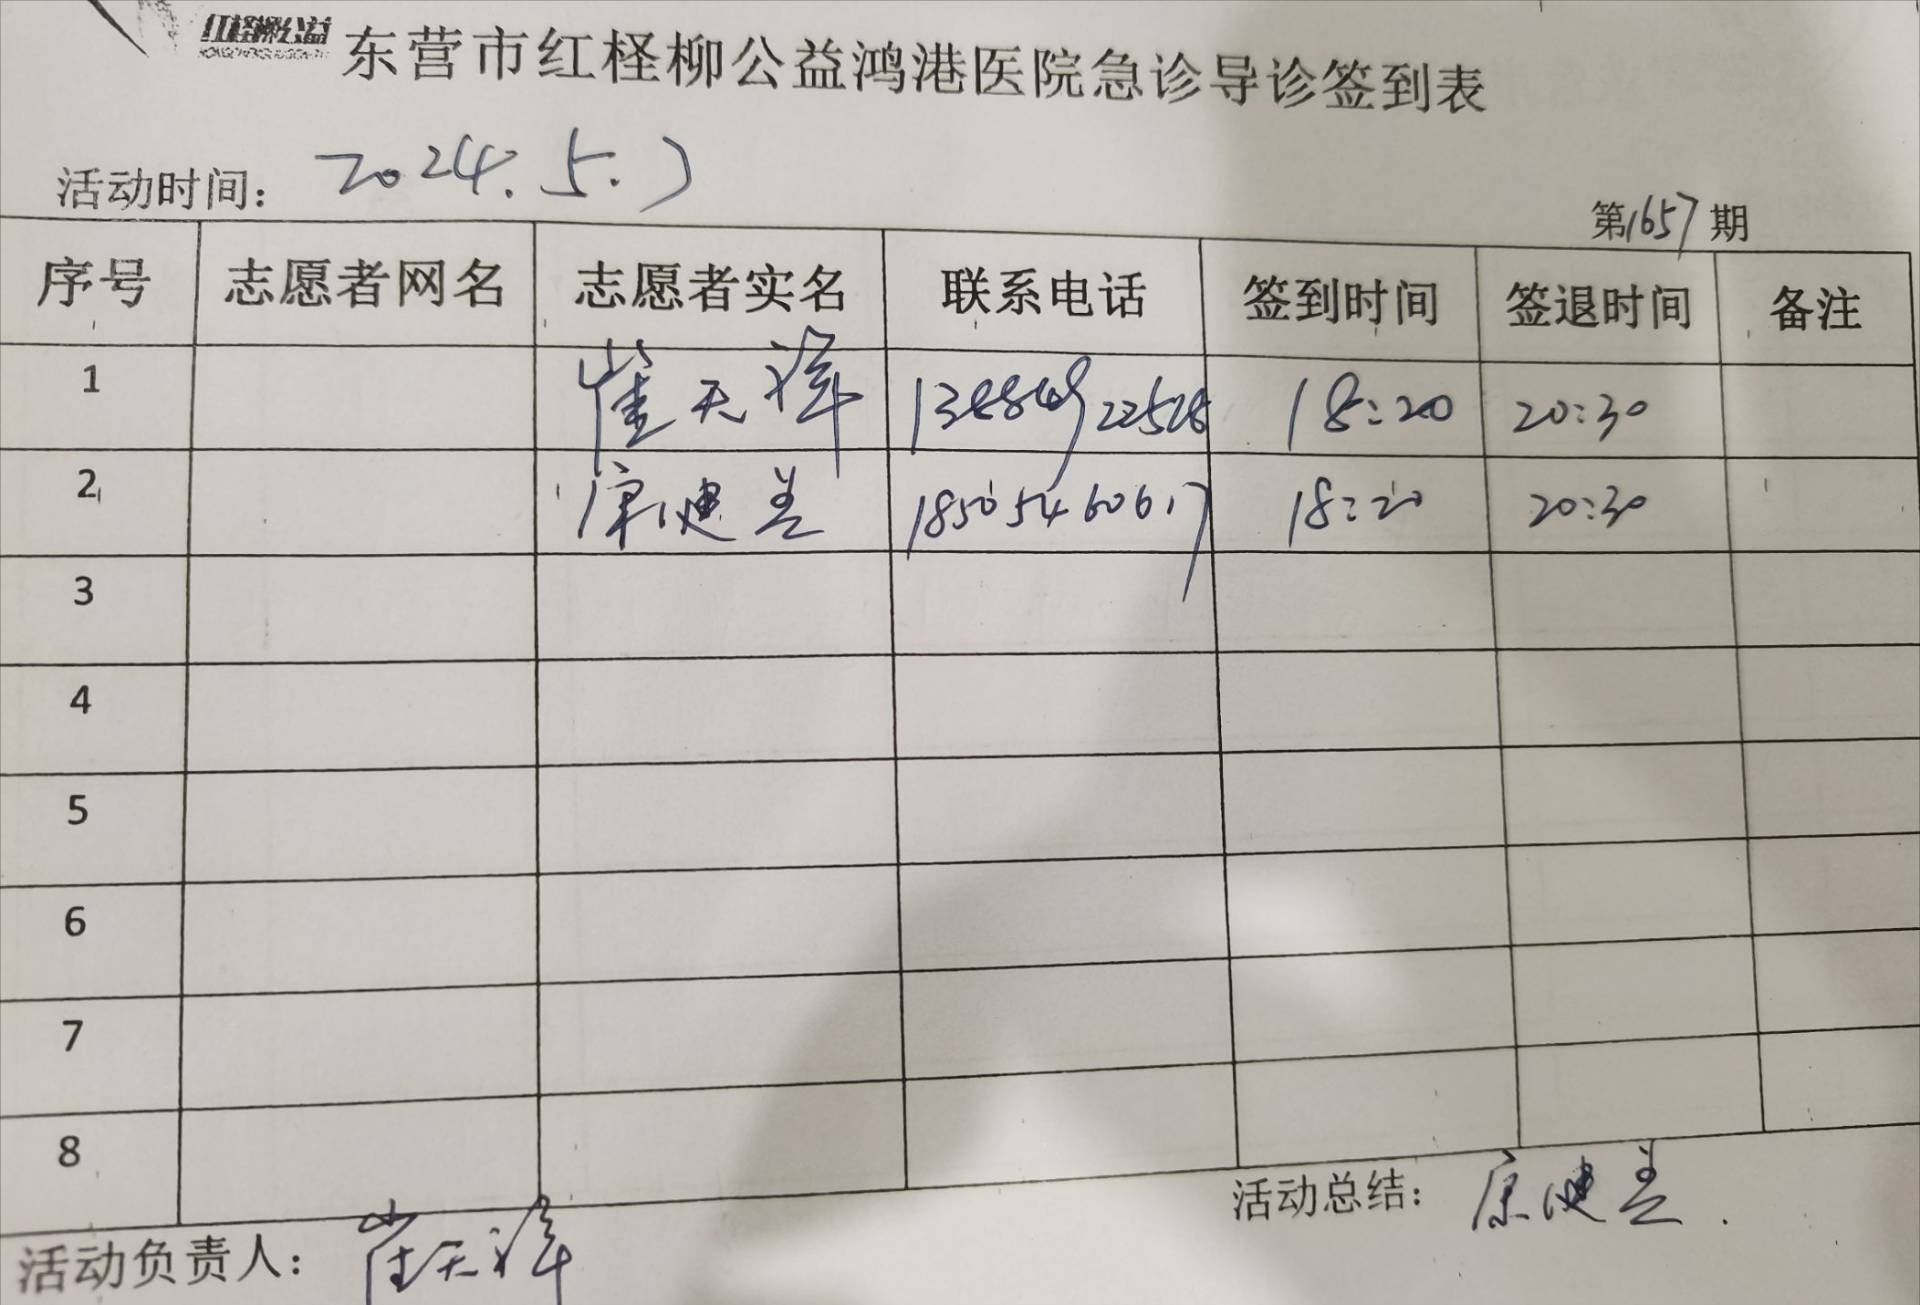 红柽柳公益
东营市红柽柳公益鸿港医院急诊导诊签到表
活动时间: 2024.5.7
第1657期
序号 志愿者网名 志愿者实名 联系电话 签到时间 签退时间 备注
1 崔天祥 18:20 20:30
2 康建兰 18505460617 18:20 20:30
3
4
5
6
7
8
活动总结: 康建兰.
活动负责人: 崔天祥